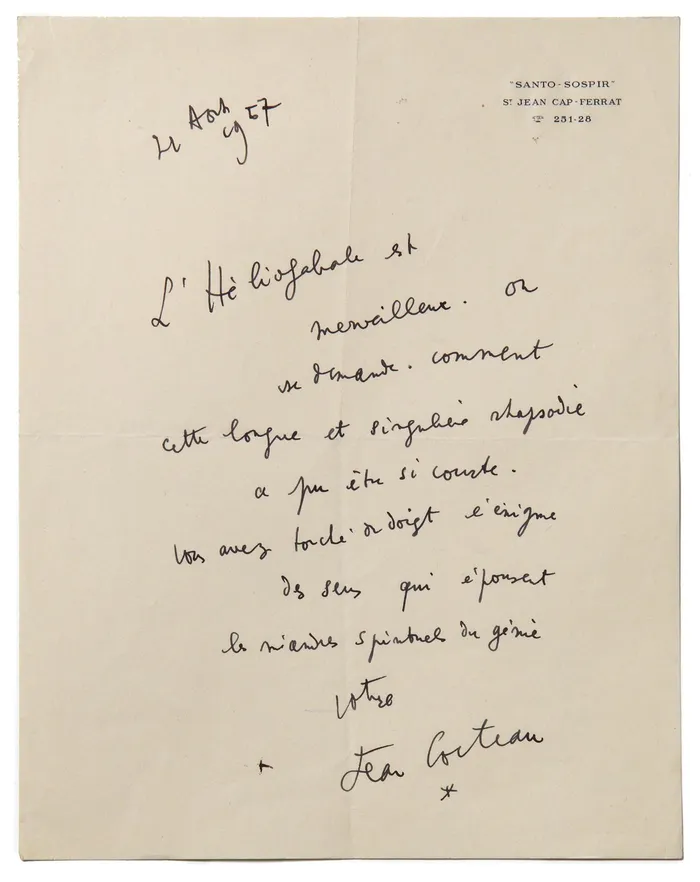 "SANTO-SOSPIR"
ST JEAN CAP-FERRAT
251-28
21 Août
1957
L'Héliogabale est
merveilleux. on
se demande. comment
cette longue et singulière rhapsodie
a pu être si courte.
vous avez touché du doigt l'énigme
des sens qui épousent
les méandres spirituels du génie
votre
Jean Cocteau
*